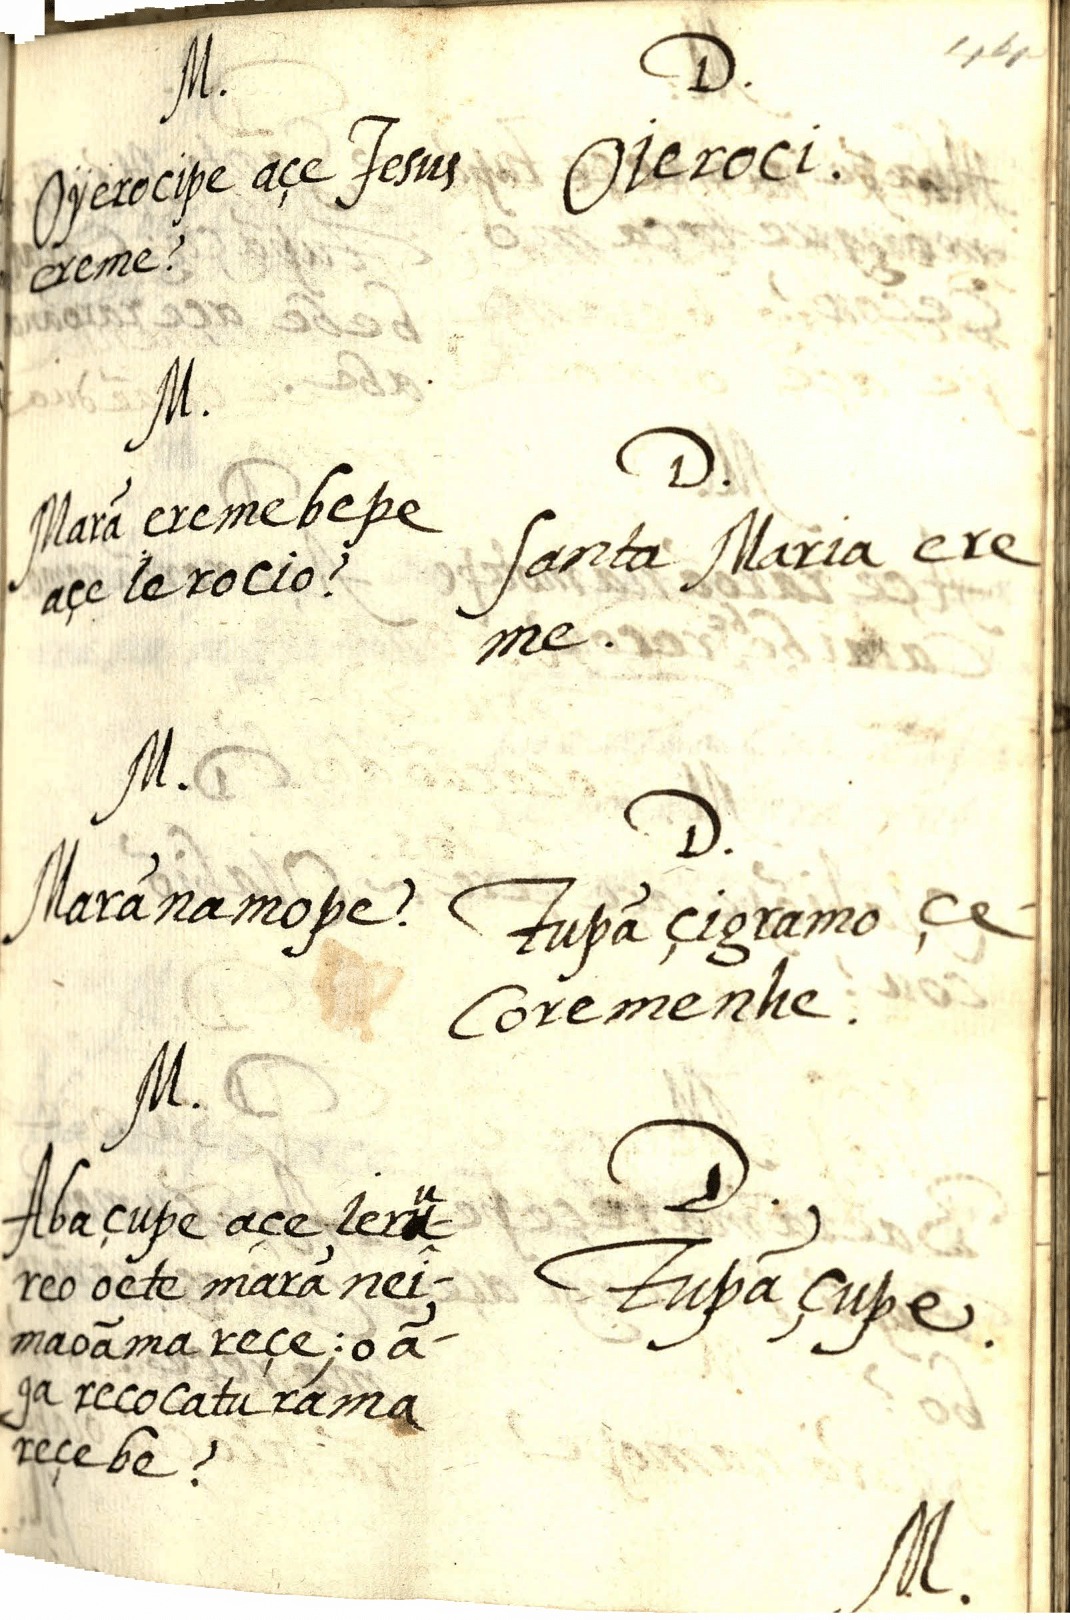 M.
Oyerocipe açe Jesus
ereme?
D.
Ojeroci.
M.
Marã eremebepe
açe ierocio?
D.
Santa Maria ere
me.
M.
Marãnamope?
D.
Tupã çigramo çe-
coremenhe.
M.
Aba çupe açe ieru-
reo oete marã neî-
maoãma reçe; o ã-
ga recocatu rama
reçebe?
D.
Tupã çupe.
M.